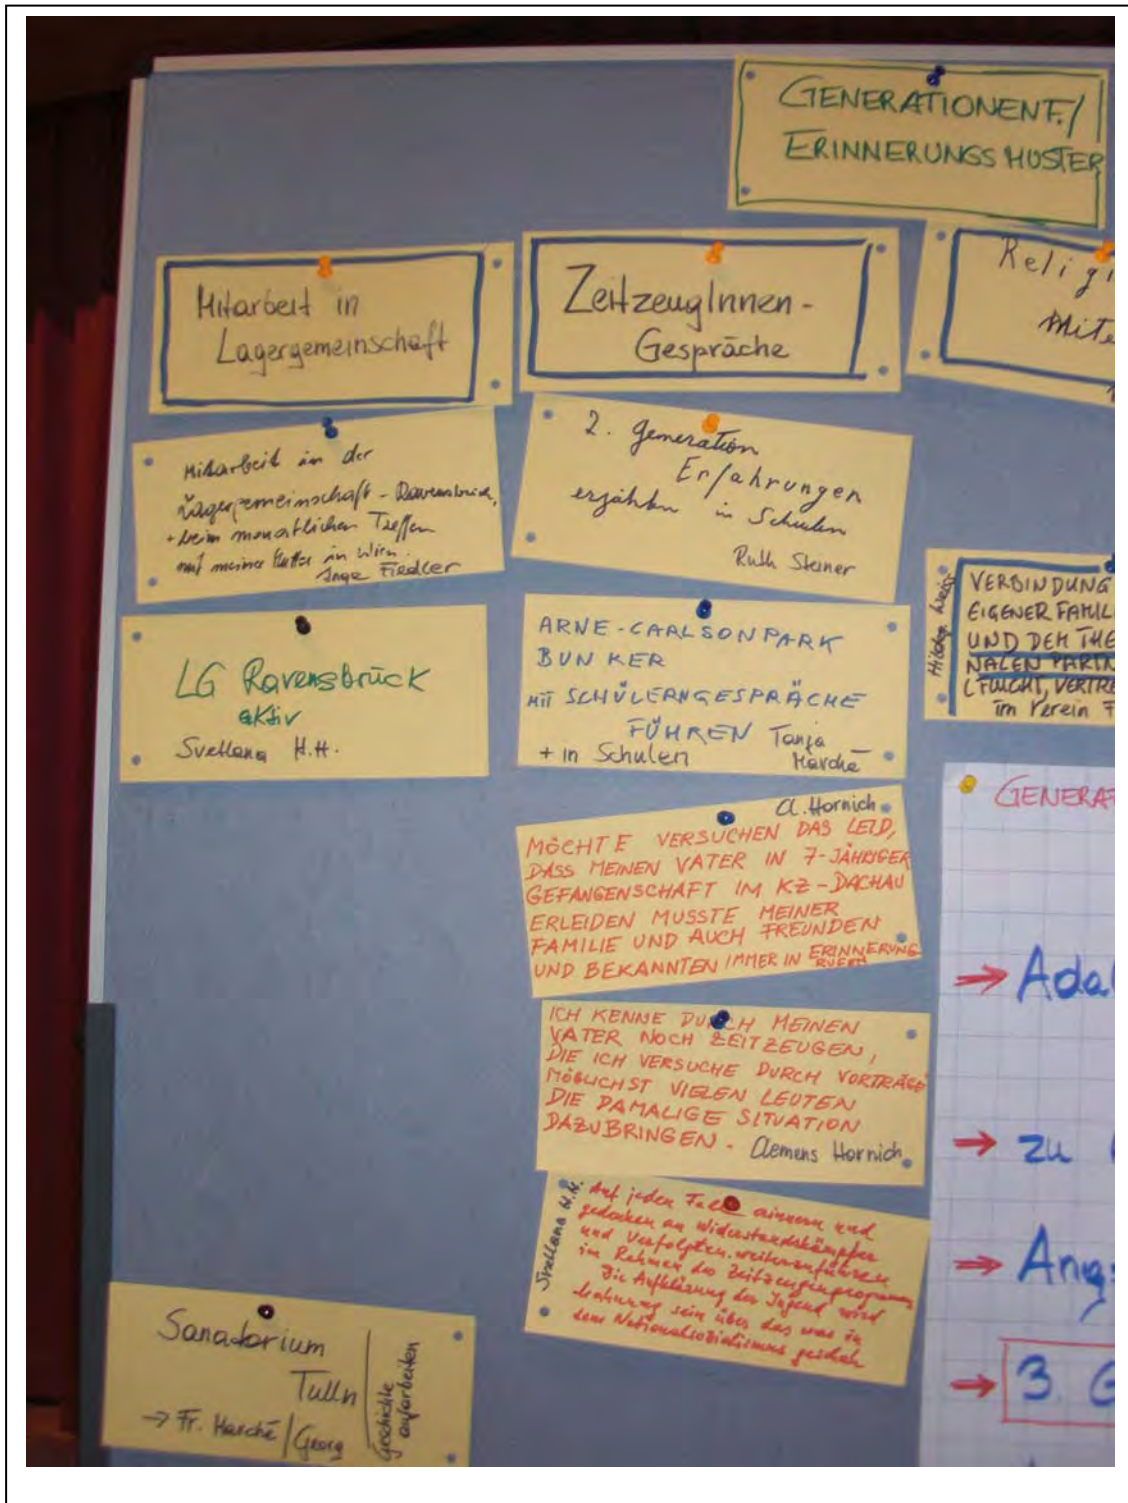 GENERATIONENT./
ERINNERUNGSMUSTER
Mitarbeit in
Lagergemeinschaft
Mitarbeit in der
Lagergemeinschaft - Ravensbrück,
+ beim monatlichen Treffen
mit meiner Mutter in Wien.
Inge Fiedler
LG Ravensbrück
aktiv
Svetlana H.H.
Sanatorium
Tulln
→ Fr. Marché / Georg
Geschichte
aufarbeiten
ZeitzeugInnen-
Gespräche
2. Generation
Erfahrungen
erzählen in Schulen
Ruth Steiner
ARNE-CARLSONPARK
BUNKER
MIT SCHÜLERNGESPRÄCHE
FÜHREN Tanja
+ in Schulen Marché
Cl. Hornich
MÖCHTE VERSUCHEN DAS LEID,
DASS MEINEN VATER IN 7-JÄHRIGER
GEFANGENSCHAFT IM KZ-DACHAU
ERLEIDEN MUSSTE MEINER
FAMILIE UND AUCH FREUNDEN
UND BEKANNTEN IMMER IN ERINNERUNG
RUFEN
ICH KENNE DURCH MEINEN
VATER NOCH ZEITZEUGEN,
DIE ICH VERSUCHE DURCH VORTRÄGE
MÖGLICHST VIELEN LEUTEN
DIE DAMALIGE SITUATION
DAZUBRINGEN - Clemens Hornich
Svetlana H.H.
Auf jeden Fall erinnern und
gedenken an Widerstandskämpfer
und Verfolgten weiterzuführen
im Rahmen des Zeitzeugenprogramms
Die Aufklärung der Jugend wird
Mahnung sein über das was in
dem Nationalsozialismus geschah
Religi
Mite
Weiss
VERBINDUNG
EIGENER FAMIL
UND DEM THE
NALEN PARTN
(FLUCHT, VERTRE
im Verein F
GENERAT
→ Ada
→ zu
→ Ang
→ 3. G